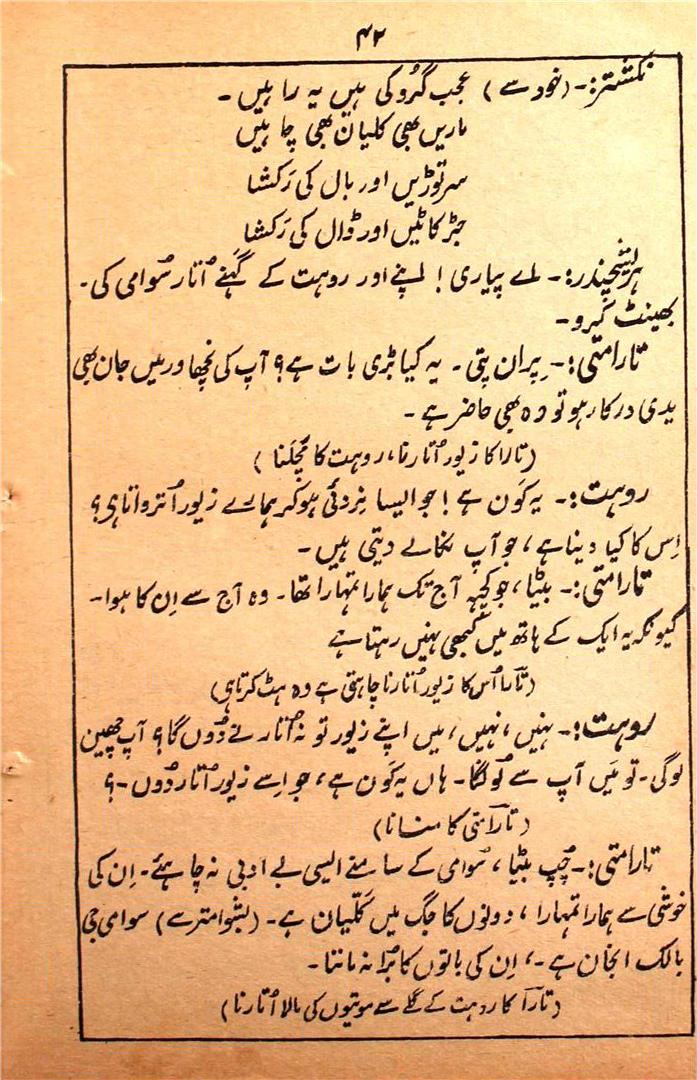 ۴۲
نکشتر:- (خود سے) عجب گُرو کی ہیں یہ راہیں -
ماریں بھی کلیان بھی چاہیں
سر توڑیں اور بال کی رَکشا
جڑ کاٹیں اور ڈال کی رَکشا
ہریشچندر:- اے پیاری! اپنے اور روہت کے گہنے اُتار سُوامی کی -
بھینٹ کرو -
تارامتی:- پِران پتی - یہ کیا بڑی بات ہے؟ آپ کی نچھاور میں جان بھی
یدی درکار ہو تو وہ بھی حاضر ہے -
(تارا کا زیور اُتارنا، روہت کا مچلنا)
روہت:- یہ کَون ہے! جو ایسا نِردئی ہو کر ہمارے زیور اُترواتا ہی؟
اِس کا کیا دینا ہے، جو آپ نکالے دیتی ہیں -
تارامتی:- بیٹا، جو کچھ آج تک ہمارا تمہارا تھا - وہ آج سے اِن کا ہوا -
کیونکہ یہ ایک کے ہاتھ میں کبھی نہیں رہتا ہے
(تارا اُس کا زیور اُتارنا چاہتی ہے وہ ہٹ کرتا ہی)
روہت:- نہیں، نہیں، میں اپنے زیور تو نہ اُتارنے دُوں گا؟ آپ چھین
لوگی - تو مَیں آپ سے لُوں گا - ہاں یہ کَون ہے، جو اِسے زیور اُتار دُوں -؟
(تارامتی کا منانا)
تارامتی:- چُپ بیٹا، سُوامی کے سامنے ایسی بے ادبی نہ چاہئے - اِن کی
خوشی سے ہمارا تمہارا، دونوں کا جگ میں کَلّیان ہے - (بشوامتر سے) سوامی جی
بالک انجان ہے -، اِن کی باتوں کا بُرا نہ ماننا -
(تارا کا روہت کے گلے سے موتیوں کی مالا اُتارنا)